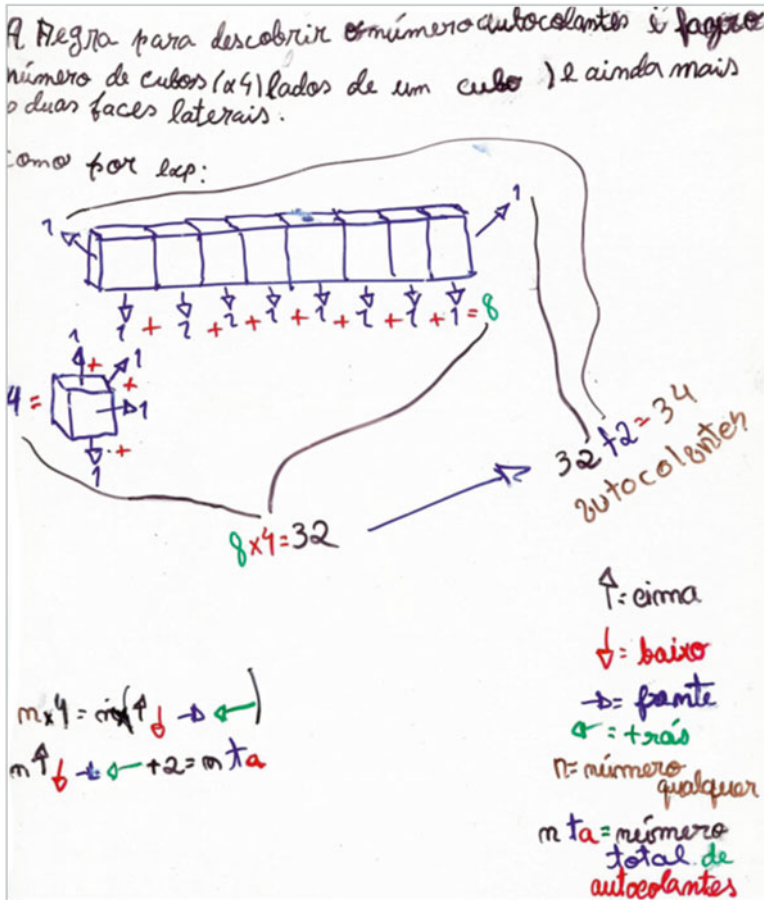 A Regra para descobrir o número autocolantes é faço o
número de cubos (x4) lados de um cubo ) e ainda mais
o duas faces laterais.
como por exp:
1
1
1 + 1 + 1 + 1 + 1 + 1 + 1 + 1 = 8
1
+
1
+
4 =
1
+
1
32 + 2 = 34
autocolantes
8x4=32
↑= cima
↓= baixo
→= frente
←= trás
n= número
qualquer
n x 4 = (↑ ↓ → ←)
n ↑ ↓ → ← +2 = n ta
n ta = número
total de
autocolantes